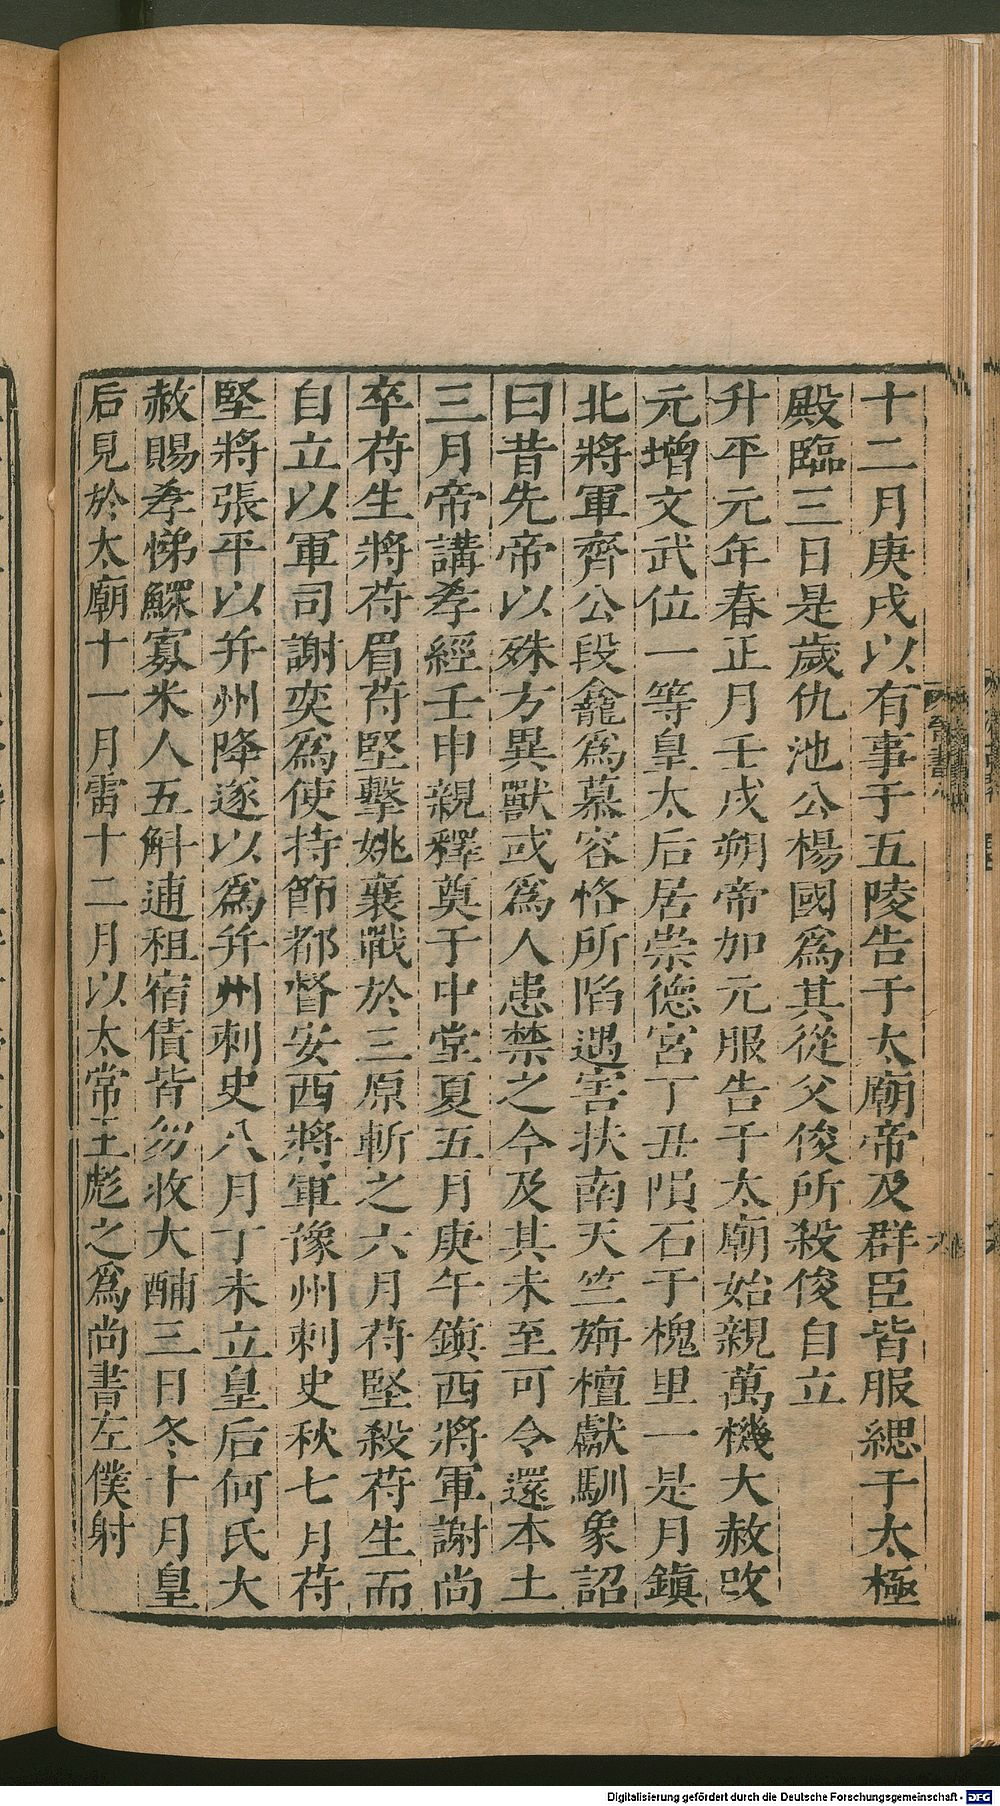 十二月庚戌以有事于五陵告于太廟帝及群臣皆服緦于太極
殿臨三日是歲仇池公楊國爲其從父俊所殺俊自立
升平元年春正月壬戌朔帝加元服告于太廟始親萬機大赦改
元增文武位一等皇太后居崇德宮丁丑隕石于槐里一是月鎮
北將軍齊公段龕爲慕容恪所陷遇害扶南天竺旃檀獻馴象詔
曰昔先帝以殊方異獸或爲人患禁之今及其未至可令還本土
三月帝講孝經壬申親釋奠于中堂夏五月庚午鎮西將軍謝尚
卒苻生將苻眉苻堅擊姚襄戰於三原斬之六月苻堅殺苻生而
自立以軍司謝奕爲使持節都督安西將軍豫州刺史秋七月苻
堅將張平以并州降遂以爲并州刺史八月丁未立皇后何氏大
赦賜孝悌鰥寡米人五斛逋租宿債皆勿收大酺三日冬十月皇
后見於太廟十一月雷十二月以太常王彪之爲尚書左僕射
Digitalisierung gefördert durch die Deutsche Forschungsgemeinschaft - DFG